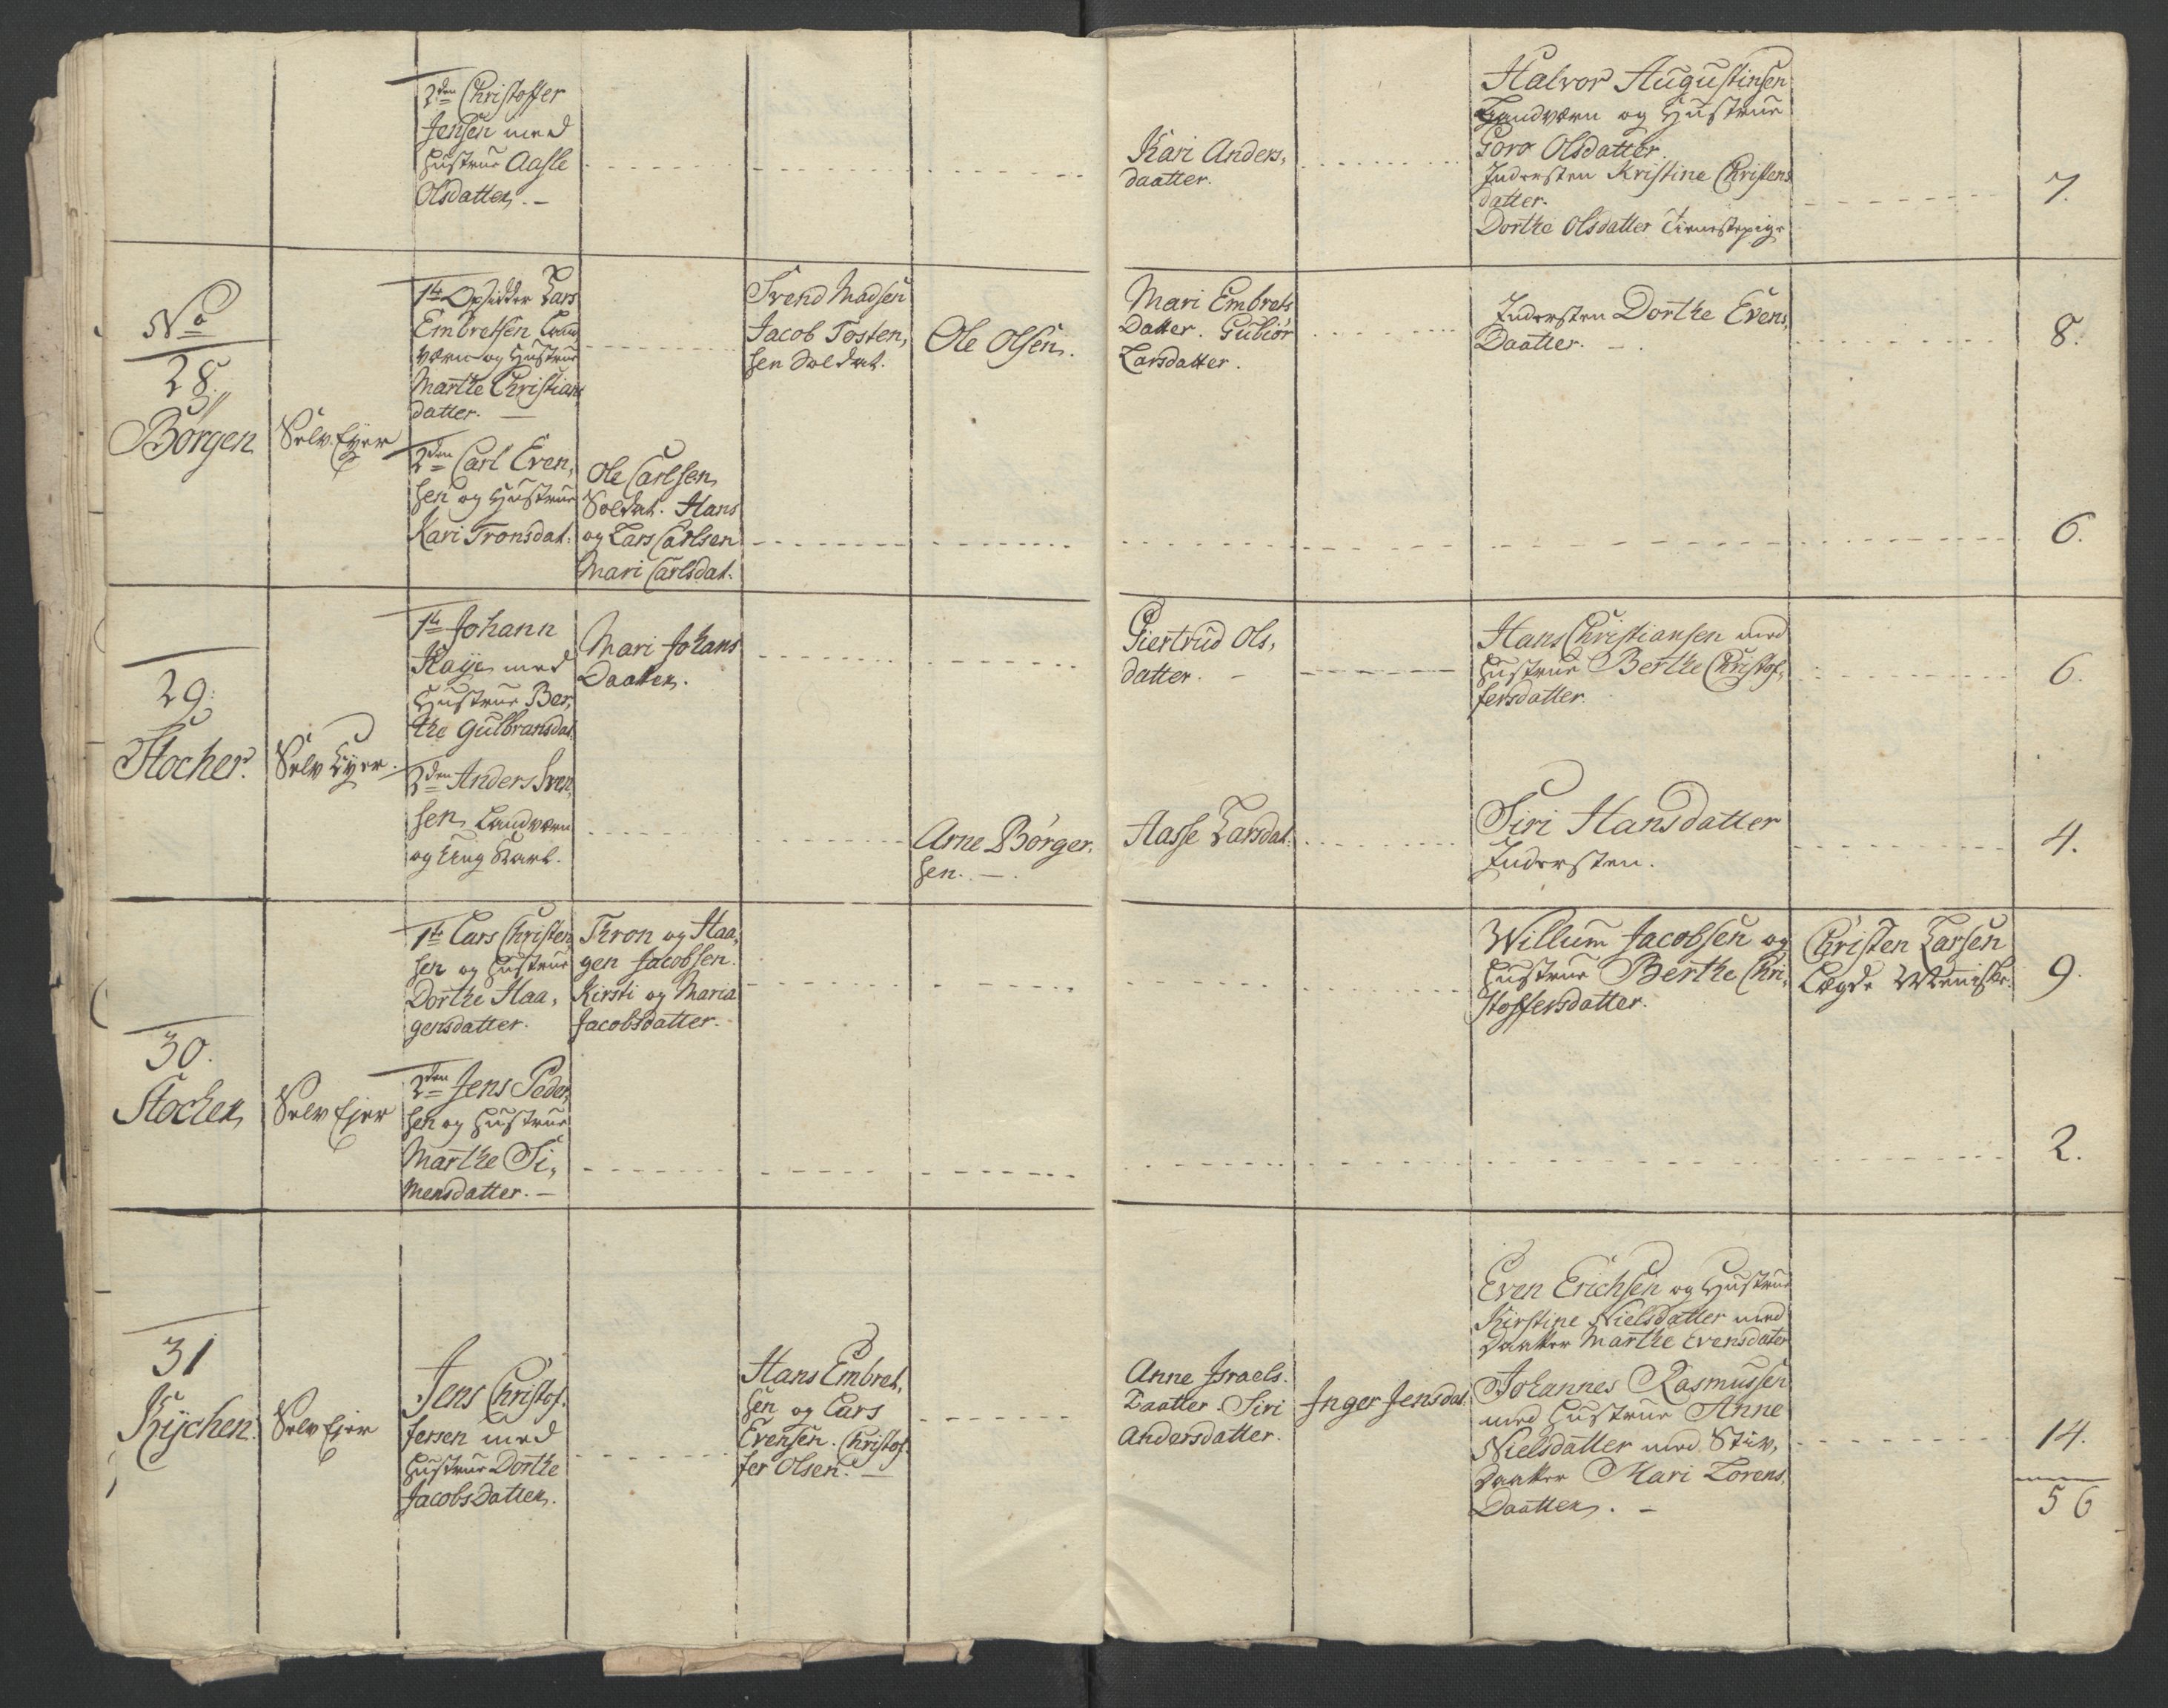 2den Christoffer
Jensen med
Hustrue Aasle
Olsdatter. –
Kari Anders,
daatter.
Halvor Augustinsen
Landværn og Hustrue
Goro Olsdatter.
Indersten Kristine Christens
datter.
Dorthe Olsdatter Tienistepige
7.
No
28.
Börgen
Selv Eyer
1te Opsidder Lars
Embretsen Land,
værn og Hustrue
Marthe Christians
datter. —
Svend Madsen
Jacob Tosten,
sen Soldat.
Ole Olsen.
Mari Embrets
Datter. Gubiör
Larsdatter.
Indersten Dorthe Evens,
Daatter. –
8.
2den Carl Even,
sen og Hustrue
Kari Tronsdat:
Ole Carlsen
Soldat. Hans
og Lars Carlsen
Mari Carlsdat.
6.
29.
Stocher.
Selv Eyer.
1te Johann
Kaye med
Hustrue Ber,
the Gulbransdat.
Mari Johans
Daatter.
Giertrud Ols,
datter. –
Hans Christiansen med
Hustrue Berthe Christof,
fersdatter.
6.
2den Anders Iver,
sen Landværn
og Ung Karl.
Arne Börger,
sen. —.
Aasse Larsdat.
Siri Hansdatter
Indersten.
4.
30.
Stocher
Selv Ejer
1te Lars Christen
sen og Hustrue
Dorthe Haa,
gensdatter.
Thron og Haa,
gen Jacobsen.
Kirsti og Maria
Jacobsdatter.
Willum Jacobsen og
Hustrue Berthe Chri,
stoffersdatter.
Christen Larsen
Lægds Menisker.
9.
2den Jens Peder,
sen og Hustrue
Marthe Si,
mensdatter. –
2.
31
Kychen.
Selv Ejer
Jens Christof,
fersen med
Hustrue Dorthe
Jacobs Datter.
Hans Embret,
sen og Lars
Evensen. Christof,
fer Olsen. —
Anne Israels.
Daatter. Siri
Andersdatter.
Inger Jensdat.
Even Erichsen og Hustrue
Kirstine Nielsdatter med
Daatter Marthe Evensdater
Johannes Rasmussen
med Hustrue Anne
Nielsdatter med Stiv,
Daatter Mari Lorens,
Daatter. –
14.
56